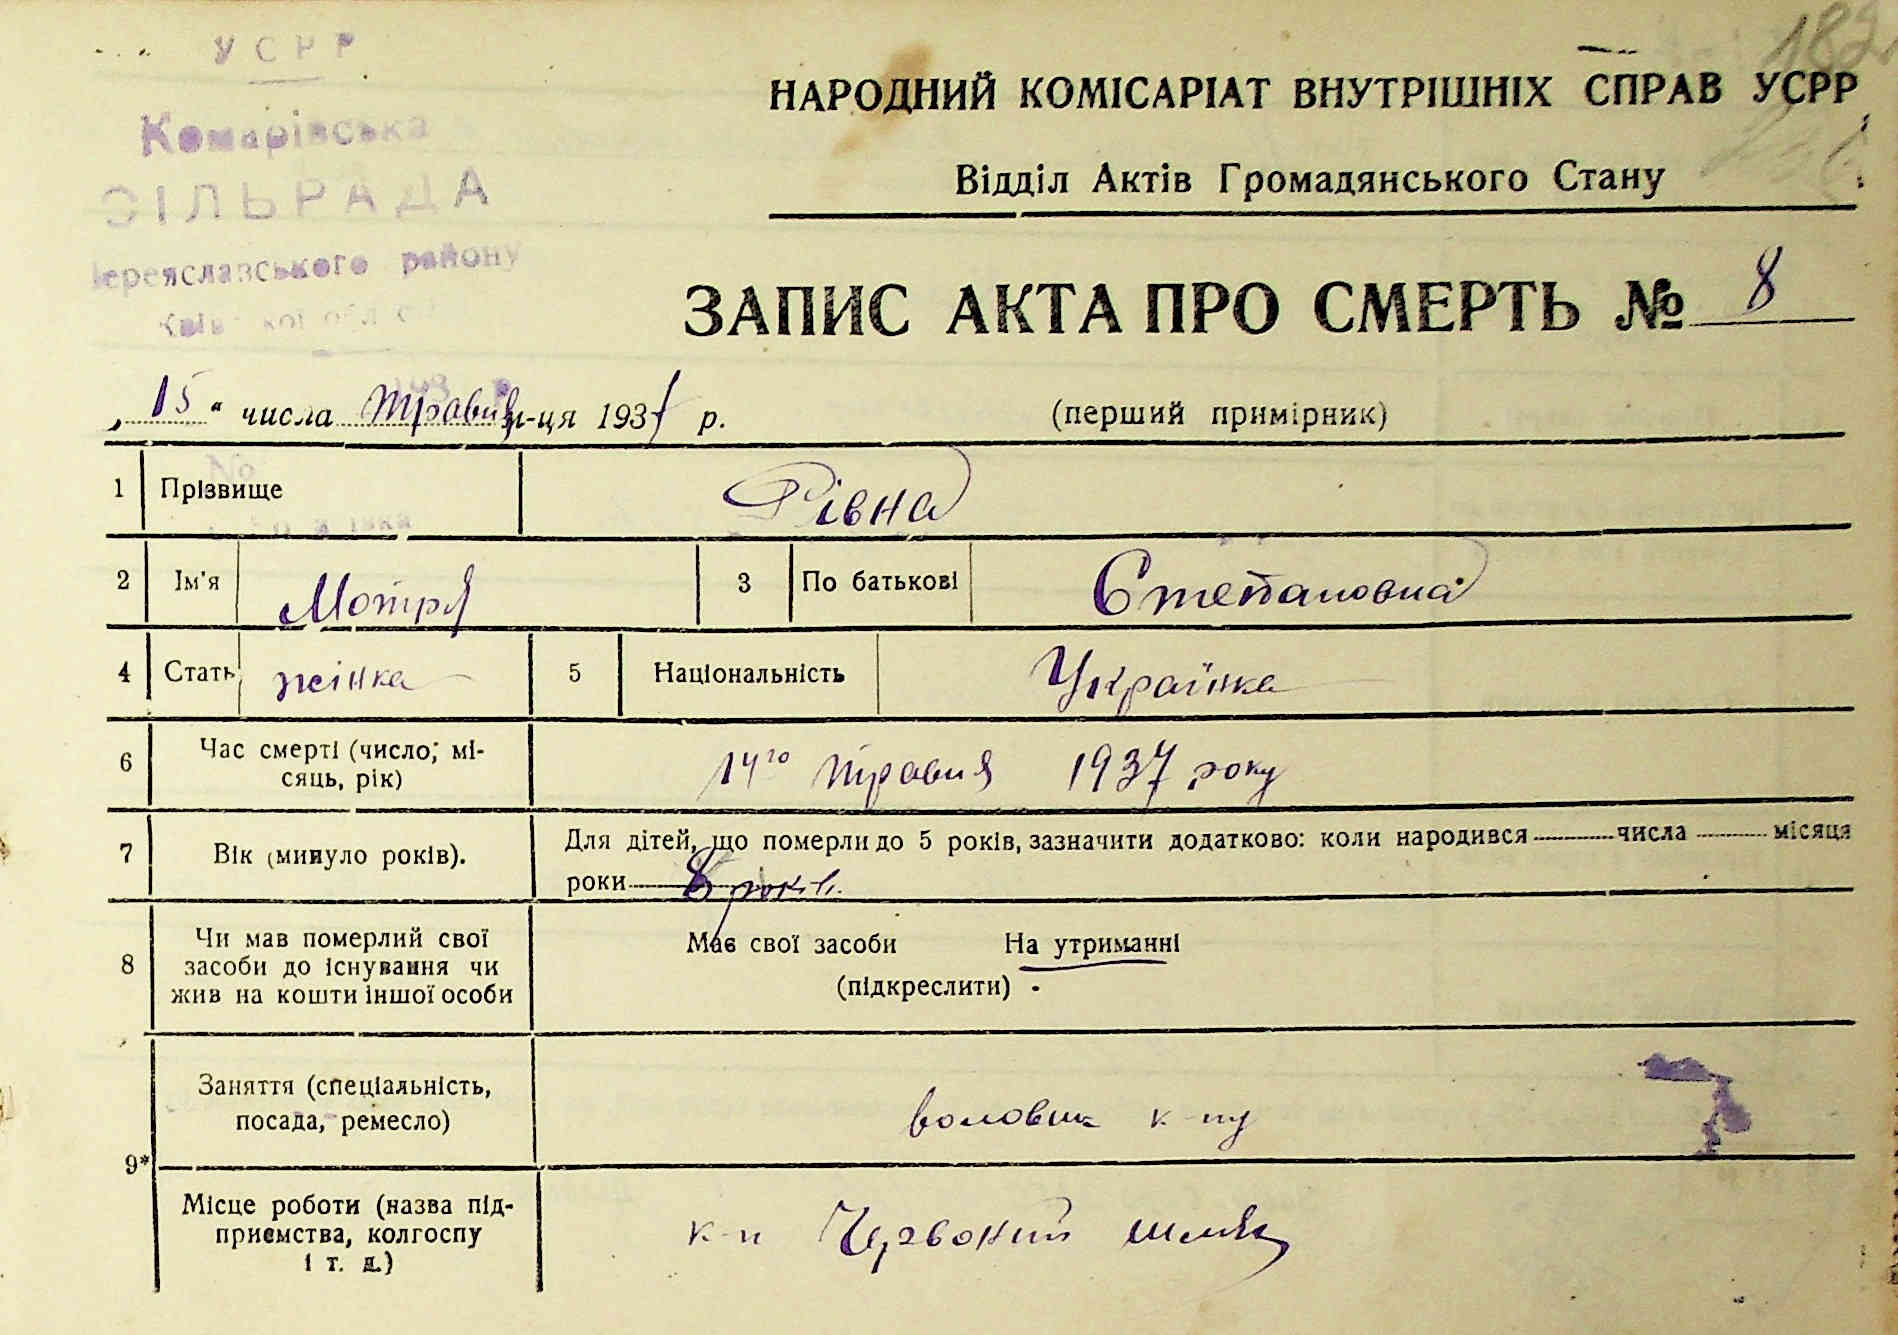 182
УСРР
Комарівська
СІЛЬРАДА
Переяславського району
НАРОДНИЙ КОМІСАРІАТ ВНУТРІШНІХ СПРАВ УСРР
Відділ Актів Громадянського Стану
ЗАПИС АКТА ПРО СМЕРТЬ № 8
„15" числа Травня м-ця 1937 р.
(перший примірник)
1 Прізвище Рівна
2 Ім'я Мотря 3 По батькові Степановна
4 Стать жінка 5 Національність Українка
6 Час смерті (число; мі-
сяць, рік) 14го травня 1937 року
7 Вік (минуло років). Для дітей, що померли до 5 років, зазначити додатково: коли народився числа місяця
роки 8 років.
8 Чи мав померлий свої
засоби до існування чи
жив на кошти іншої особи
Має свої засоби На утриманні
(підкреслити)
9* Заняття (спеціальність,
посада, ремесло) к-пу
Місце роботи (назва під-
приємства, колгоспу
і т. д.) к-п Червоний шлях